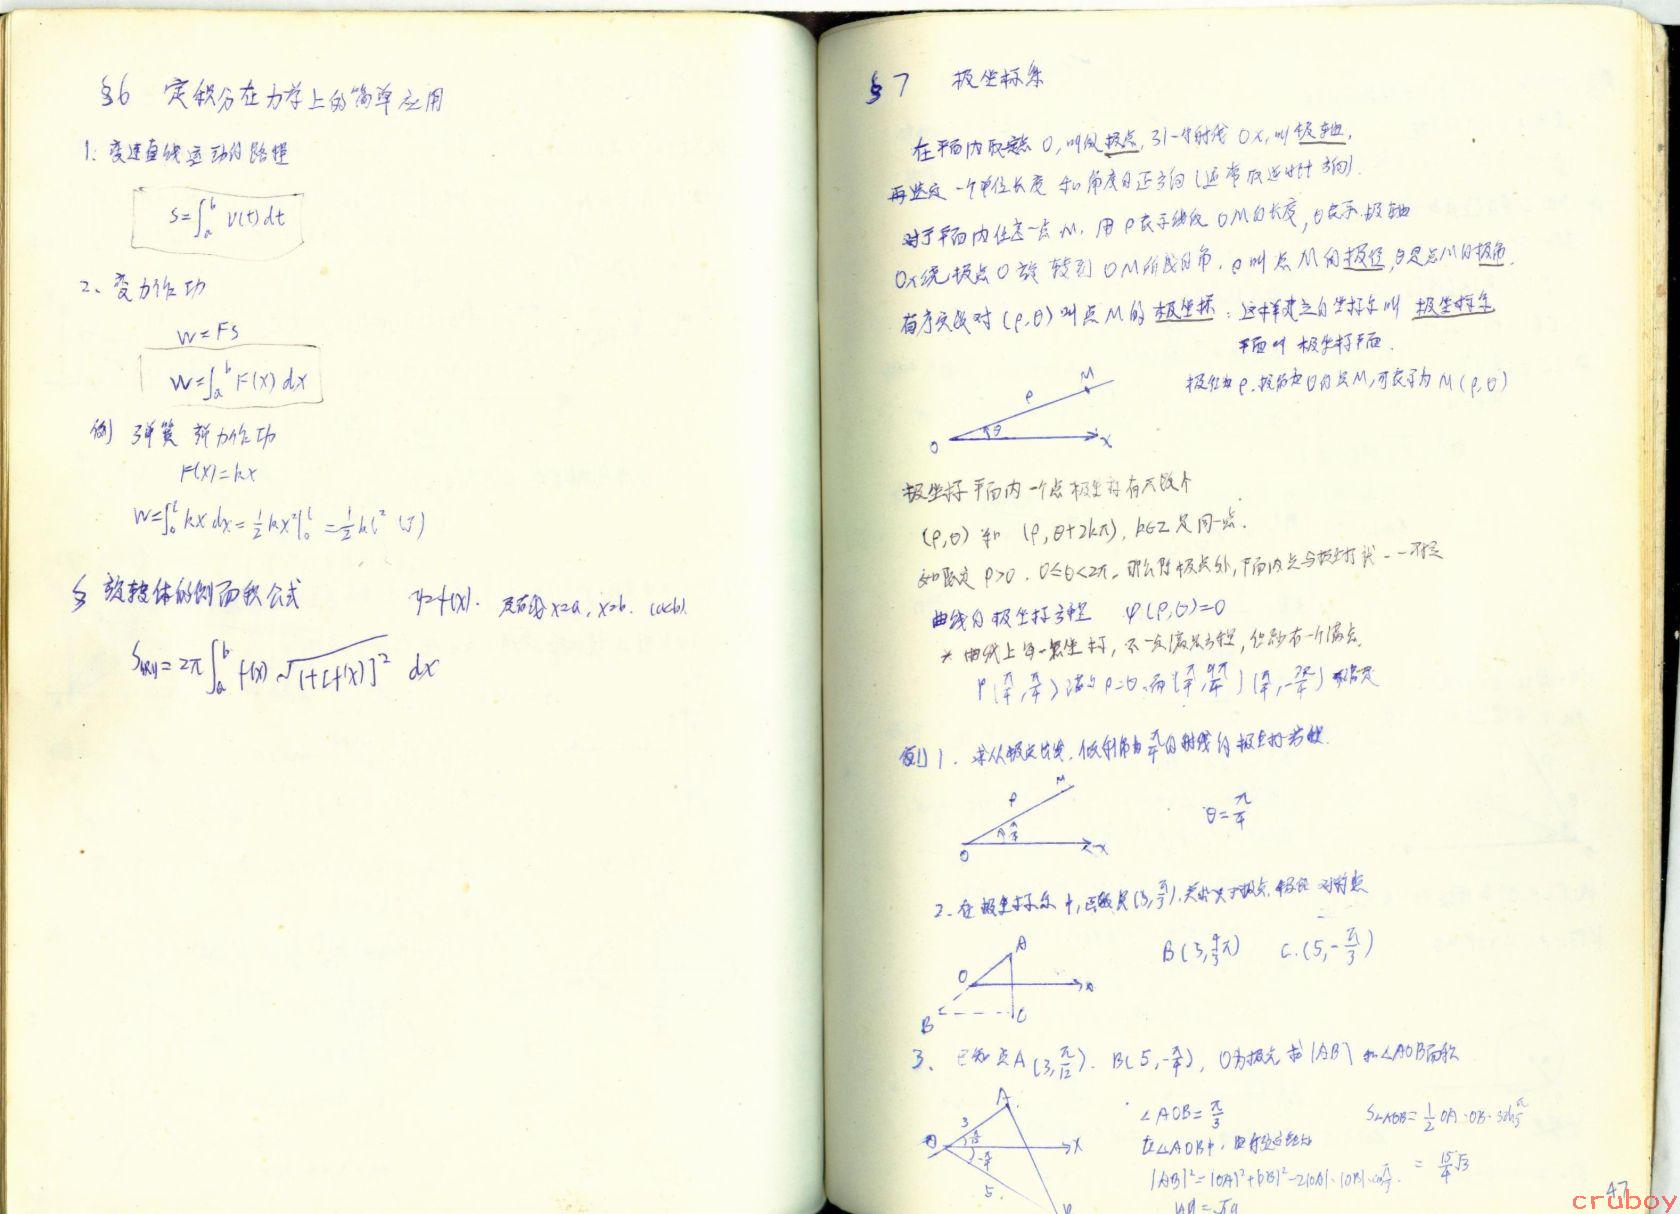 §6 定积分在力学上的简单应用
1、变速直线运动的路程
S=∫_a^b V(t)dt
2、变力作功
W=FS
W=∫_a^b F(x)dx
例 弹簧弹力作功
F(x)=kx
W=∫_0^l kx dx=½kx²|_0^l=½kl² (J)
§ 旋转体的侧面积公式 y=f(x). x=a, x=b. (a<b).
S侧=2π∫_a^b f(x)√(1+[f'(x)]²) dx
§7 极坐标系
在平面内取定点O,叫做极点,引一条射线OX,叫极轴,
再选定一个单位长度和角度的正方向(通常取逆时针方向).
对于平面内任意一点M,用ρ表示线段OM的长度,θ表示极轴
OX绕极点O旋转到OM所成的角,ρ叫点M的极径,θ是点M的极角.
有序实数对(ρ,θ)叫点M的极坐标.这样建立的坐标系叫极坐标系
平面叫极坐标平面.
极径为ρ,极角为θ的点M,可表示为M(ρ,θ)
M
ρ
θ
O
X
极坐标平面内一个点极坐标有无数个
(ρ,θ)和(ρ,θ+2kπ),k∈Z是同一点.
如限定ρ>0,0≤θ<2π,那么除极点外,平面内点与极坐标就一一对应
曲线的极坐标方程 φ(ρ,θ)=0
* 曲线上每一点坐标,不一定满足方程,但至少有一个满足.
P(π/4,π/4)满足ρ=θ,而(π/4,9π/4)(π/4,-7π/4)不满足
例1. 求从极点出发,倾斜角为π/4的射线的极坐标方程.
M
ρ
π/4
O
X
θ=π/4
2.在极坐标系中,已知点(3,π/3),关于极点,极径对称点
B(3,4/3π) C.(5,-π/3)
A
O
x
B
C
3、已知点A(3,π/12).B(5,-π/4),O为极点求|AB|和△AOB面积
A
3
π/12
O
X
-π/4
5
∠AOB=π/3
S△AOB=½OA·OB·sinπ/3
在△AOB中,由余弦定理得
|AB|²=|OA|²+|OB|²-2|OA|·|OB|·cosπ/3.
=15/4√3
47
cruboy